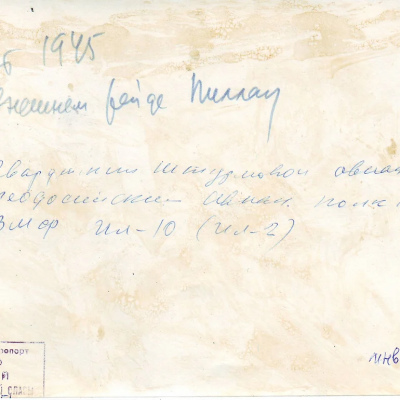 б 1945
внешнем рейде Пиллау
Гвардейский Штурмовой авиа
Феодосийский Авиац. полк
ВМФ Ил-10 (Ил-2)
инв